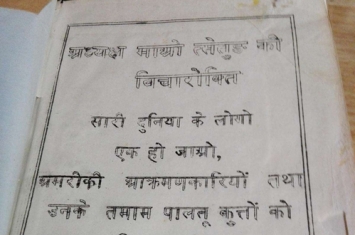 अध्यक्ष माओ त्सेतुङ की
विचारोक्ति
सारी दुनिया के लोगो
एक हो जाओ,
अमरीकी आक्रमणकारियों तथा
उनके तमाम पालतू कुत्तों को